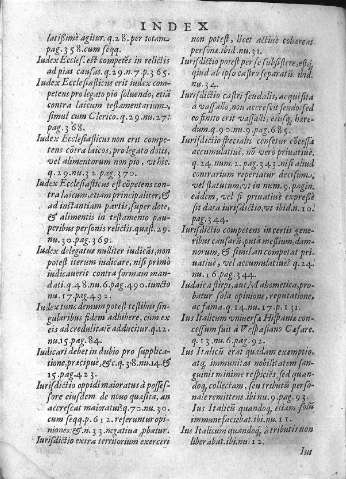 INDEX
latissimè agitur. q.28. per totam.
pag.358. cum seqq.
Iudex Eccles. est competens in relictis
ad pias causas. q.29. n.7. p.365.
Iudex Ecclesiasticus est iudex com-
petens pro legato pio soluendo, etiã
contra laicum testamentarium,
simul cum Clerico. q.29. nu.27:
pag.368.
Iudex Ecclesiasticus non erit compe-
tens cõtra laicos, pro legato dotis,
vel alimentorum non pio, vt hic.
q.29. nu.32. pag.370.
Iudex Ecclesiasticus est cõpetens con-
tra laicum, etiam principaliter, &
ad instantiam partis, super dote,
& alimentis in testamento pau-
peribus personis relictis. quæst.29.
nu.30. pag.369.
Iudex delegatus nulliter iudicãs, non
potest iterum iudicare, nisi primò
iudicauerit contra formam man-
dati. q.48. nu.6. pag.490. iuncto
nu.17. pag.492.
Iudex tunc demum potest testibus sin-
gularibus fidem adhibere, cum ex
eis ad credulitatẽ adducitur. q.12.
nu.15. pag.84.
Iudicari debet in dubio pro supplica-
tione, precipuè, &c. q.38. nu.14. &
15. pag.423.
Iurisdictio oppidi maioratus à posses-
sore eiusdem de nouo quæsita, an
accrescat maioratui? q.70. nu.30.
cum seqq. p.612. referuntur opi-
niones. & n.33. negatiua pbatur.
Iurisdictio extra territorium exerceri
non potest, licet actiuè cohereat
personæ. ibid. nu.31.
Iurisdictio potest per se subsistere, etiã
quid ab ipso castro separatis. ibid.
nu.34.
Iurisdictio castri feudalis, acquisita
à vasallo, non accrescit feudo, sed
eo finito erit vasalli, eiusq; here-
dum. q.90. nu.9. pag.685.
Iurisdictio specialis censetur cõcessa
accumulatiuè, nõ verò priuatiuè.
q.24. num.2. pag.343. nisi aliud
contrarium reperiatur decisum,
vel statutum, vt in
eadem, vel si priuatiuè expresse
sit data iurisdictio, vt ibid. n.10.
pag.344.
Iurisdictio competens in certis gene-
ribus causarũ, putà mesium, dam-
norum, & simil. an competat pri-
uatiuè, vel accumulatiuè? q.24.
nu.16. pag.344.
Iudaica stirps, aut, ad abometica, pro-
batur sola opinione, reputatione,
ac fama. q.14. nu.17. p.131.
Ius Italicum vniuersæ Hispaniæ con-
cessum fuit à Vespasiano Cæsare.
q.13. nu.6. pag.92.
Ius Italicũ erat quædam exemptio,
atq; immunitas nobilitatem san-
guinis minimè respiciẽs, sed quan-
doq; collectam, seu tributũ perso-
nale remittens. ibi. nu.9. pag.93.
Ius Italicum quandoq; etiam solũ
immune faciebat. ibi. nu.11.
Ius Italicum quandoq; à tributis non
liberabat. ibi. nu.12.
Ius